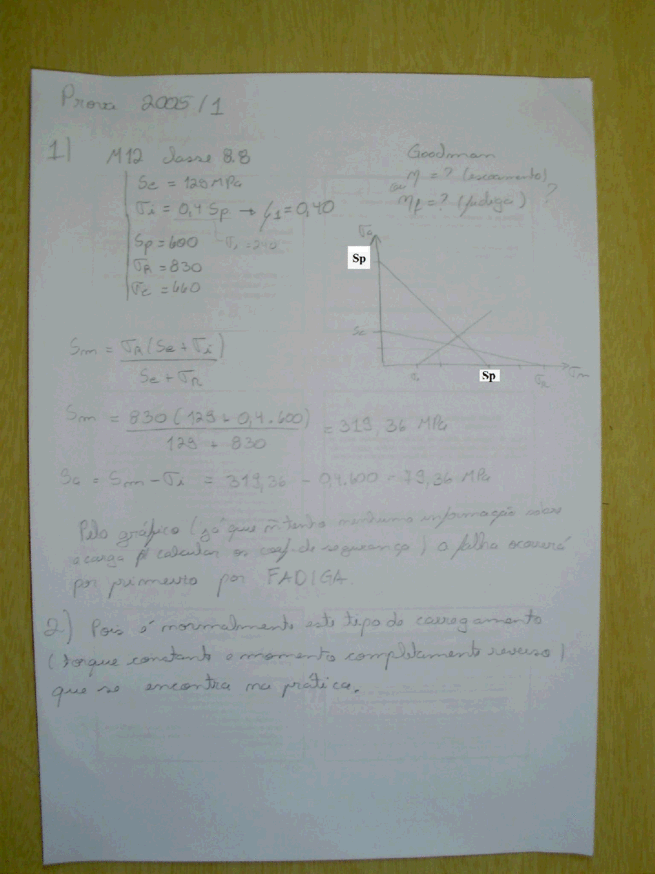 Prova 2005/1
1) M12 classe 8.8
Goodman
η = ? (escoamento)
ou
ηf = ? (fadiga) ?
Se = 129 MPa
σi = 0,4 Sp → ζ1 = 0,40
Sp = 600
σR = 830
σe = 660
σa
Sp
Se
σi
Sp
σR
σm
Sm = σR (Se + σi) / Se + σR
Sm = 830 (129 + 0,4.600) / 129 + 830 = 319,36 MPa
Sa = Sm - σi = 319,36 - 0,4.600 = 79,36 MPa
Pelo gráfico (já que ñ tenho nenhuma informação sobre
a carga p/ calcular os coef. de segurança) a falha ocorrerá
por primeiro por FADIGA
2) Pois é normalmente este tipo de carregamento
(torque constante e momento completamente reverso)
que se encontra na prática.